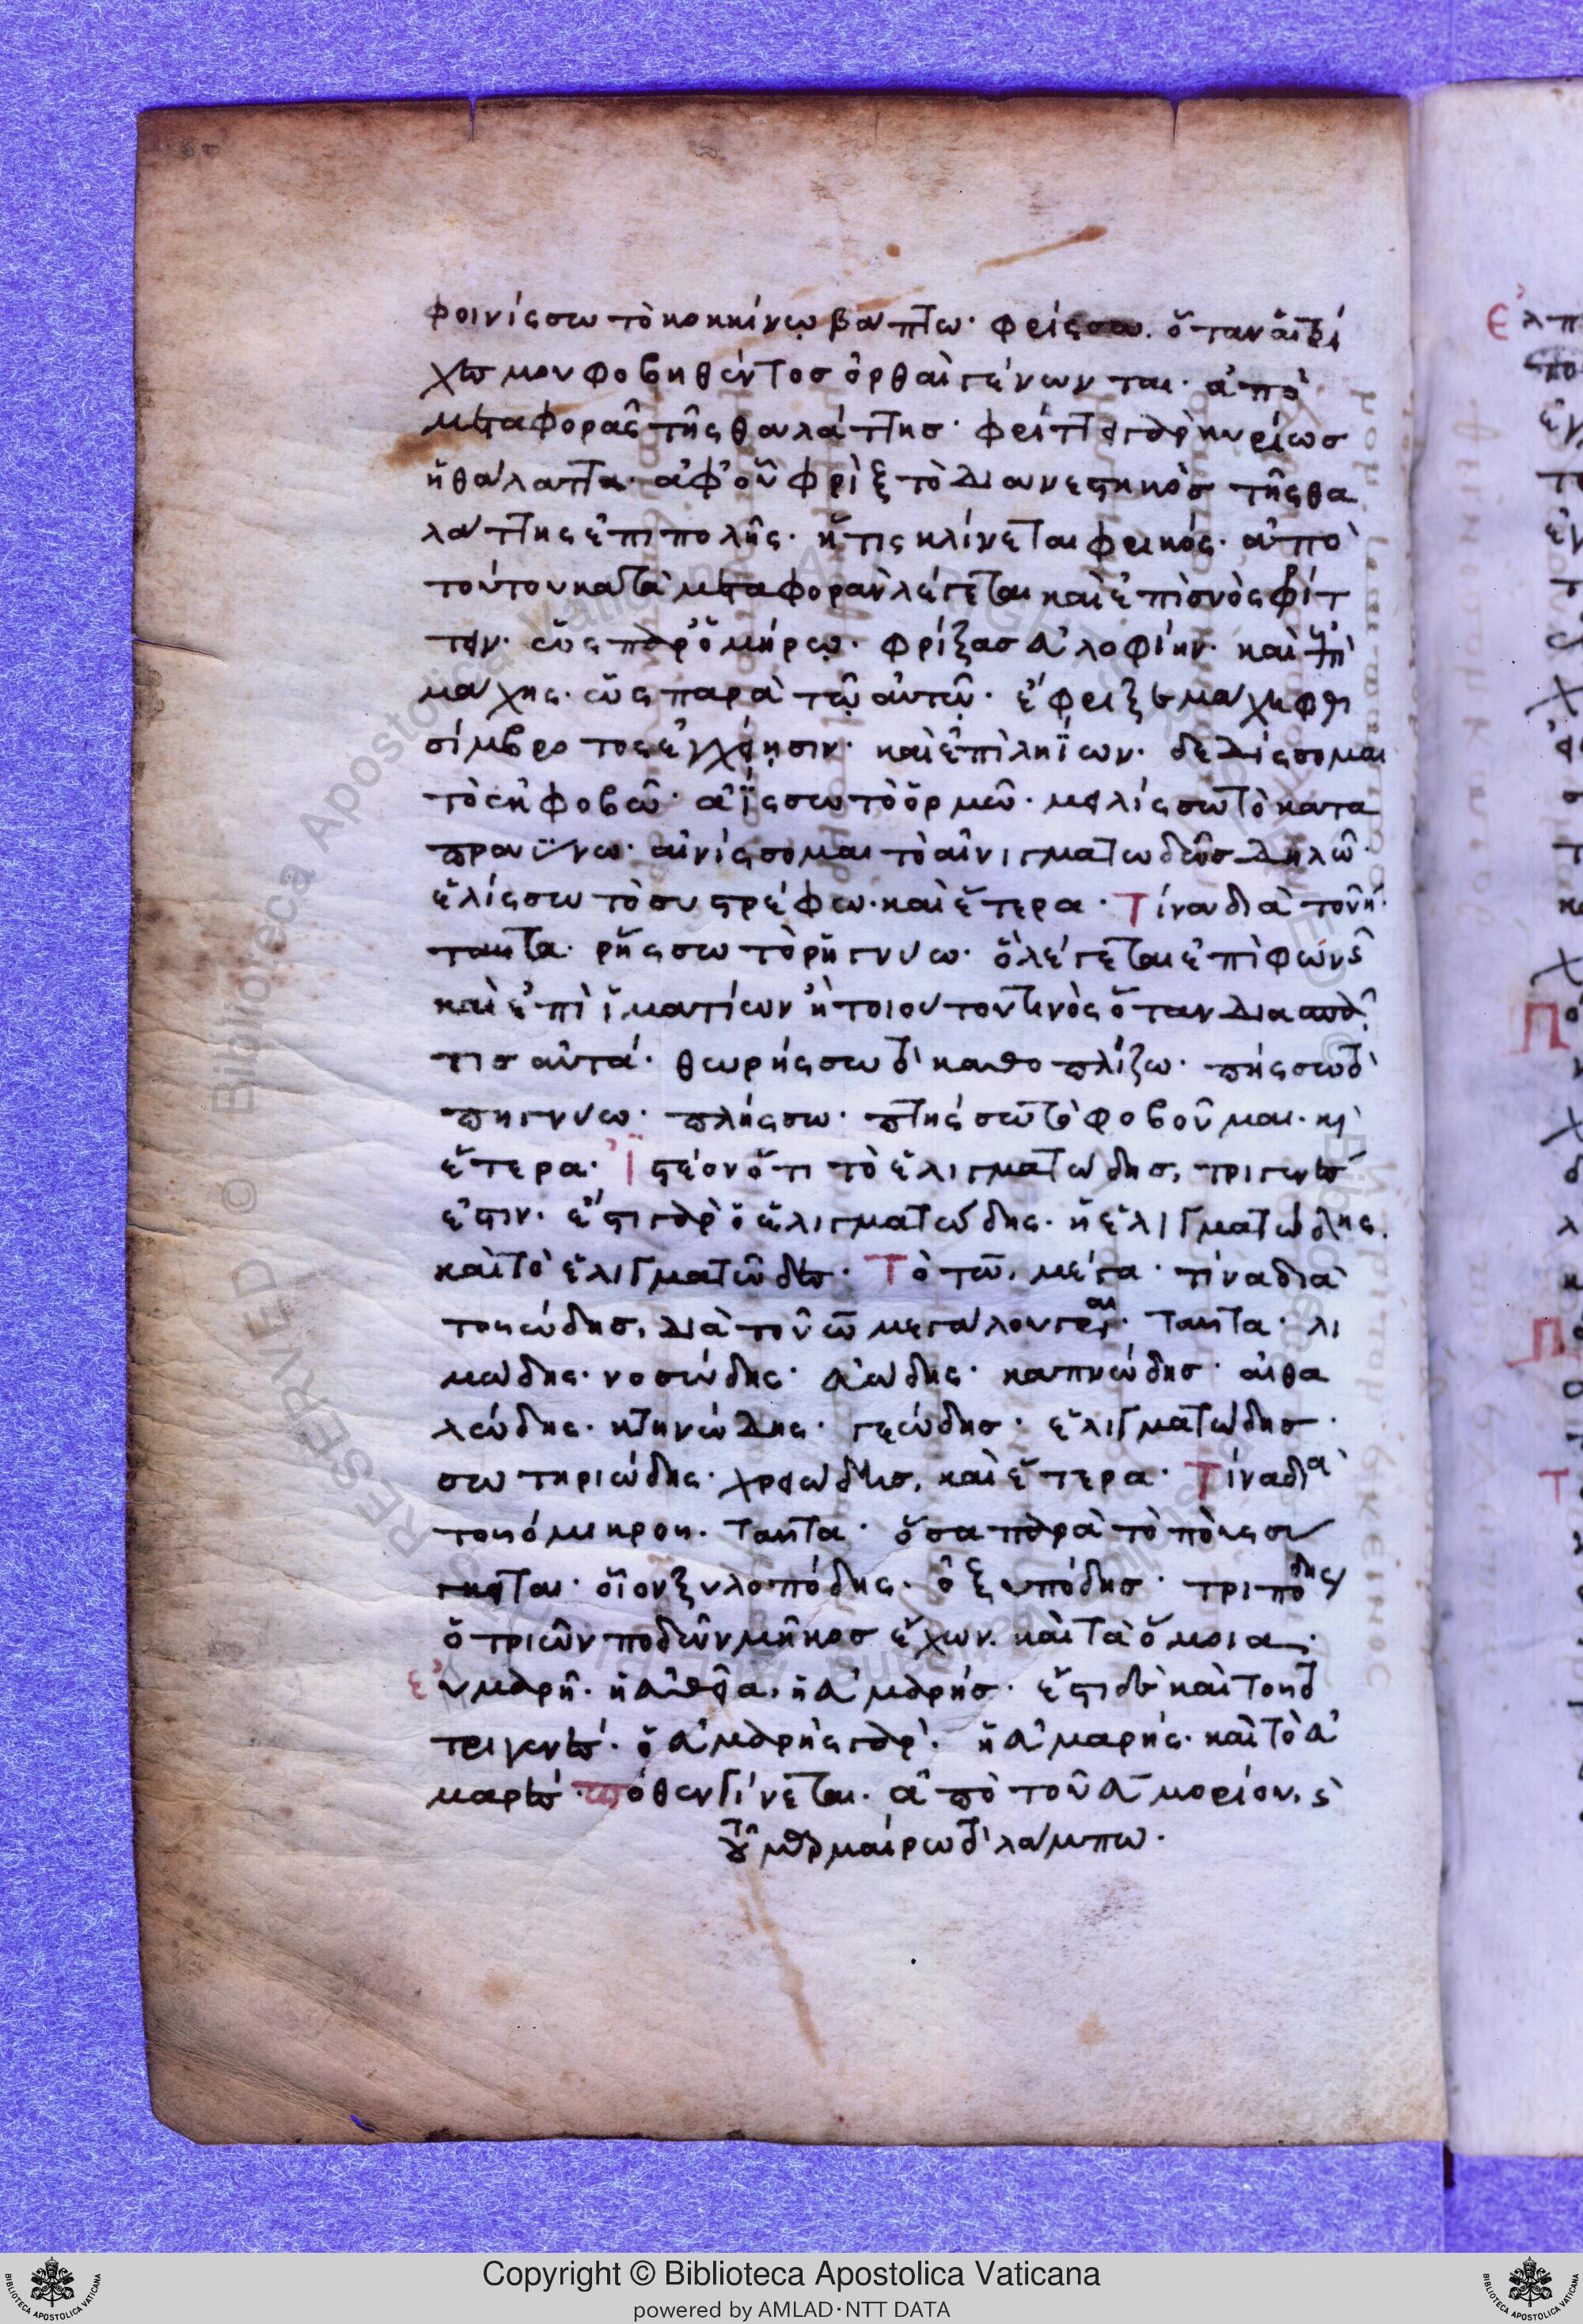 φοινίσσω τὸ κοκκίνῳ βάπτω· φρίσσω. ὅταν αἱ τρί
χες μου φοβηθέντος ὀρθαὶ γένωνται· ἀπὸ
μεταφορᾶς τῆς θαλάττης· φρίττει γὰρ κυρίως
ἡ θάλαττα· ἀφ' οὗ φρὶξ τὸ διανεστηκὸς τῆς θα
λάττης ἐπιπολῆς· ἥτις κλίνεται φρικός· ἀπὸ
τούτου κατὰ μεταφορὰν λέγεται καὶ ἐπὶ συὸς φρίτ
τειν· ὡς παρ' ὁμήρῳ· φρίξας λοφίην· καὶ ἐπὶ
μάχης· ὡς παρὰ τῷ αὐτῷ· ἔφριξε μάχη φθι
σίμβροτος ἐγχείῃσιν· καὶ ἐπὶ ληΐων· δεδίσσομαι
τὸ ἐκφοβῶ· ἀΐσσω τὸ ὁρμῶ· μειλίσσω τὸ κατα
πραΰνω· αἰνίσσομαι τὸ αἰνιγματωδῶς δηλῶ·
ἑλίσσω τὸ συστρέφω· καὶ ἕτερα· Τίνα διὰ τοῦ η·
ταῦτα· ῥήσσω τὸ ῥηγνύω· ὃ λέγεται ἐπὶ φωνῆς
καὶ ἐπὶ ἱματίων ἢ τοιούτου τινὸς ὅταν
τις αὐτά· θωρήσσω τὸ καθοπλίζω· πήσσω τὸ
πηγνύω· πλήσσω· πτήσσω τὸ φοβοῦμαι· καὶ
ἕτερα· Ἰστέον ὅτι τὸ ἑλιγματώδης, τριγενές
ἐστιν· ἔστι γὰρ ὁ ἑλιγματώδης· ἡ ἑλιγματώδης.
καὶ τὸ ἑλιγματῶδες· Τὸ τω, μέγα· τίνα διὰ
τοῦ ώδης, διὰ τοῦ ω μεγάλου γραι· ταῦτα· λι
μώδης· νοσώδης· λώδης· καπνώδης· αἰθα
λώδης· κτηνώδης· γεώδης· ἑλιγματώδης·
σωτηριώδης· χρεώδης, καὶ ἕτερα· Τίνα διὰ
τοῦ ο μικροῦ· ταῦτα· ὅσα παρὰ τὸ ποὺς συν
κειται· οἷον ξυλοπόδης· ὀξυπόδης· τριπόδης
ὁ τριῶν ποδῶν μῆκος ἔχων· καὶ τὰ ὅμοια·
ἐν μερῆ· ἡ ἀλήθεια, ἡ ἀμερής· ἔστι δὲ καὶ τοῦτο
τριγενές· ὁ ἀμαρὴς γάρ· ἡ ἀμαρής· καὶ τὸ ἀ
μαρές· πόθεν γίνεται· ἀπὸ τοῦ ἀ μορίου, καὶ
τοῦ μαρμαίρω τὸ λάμπω·